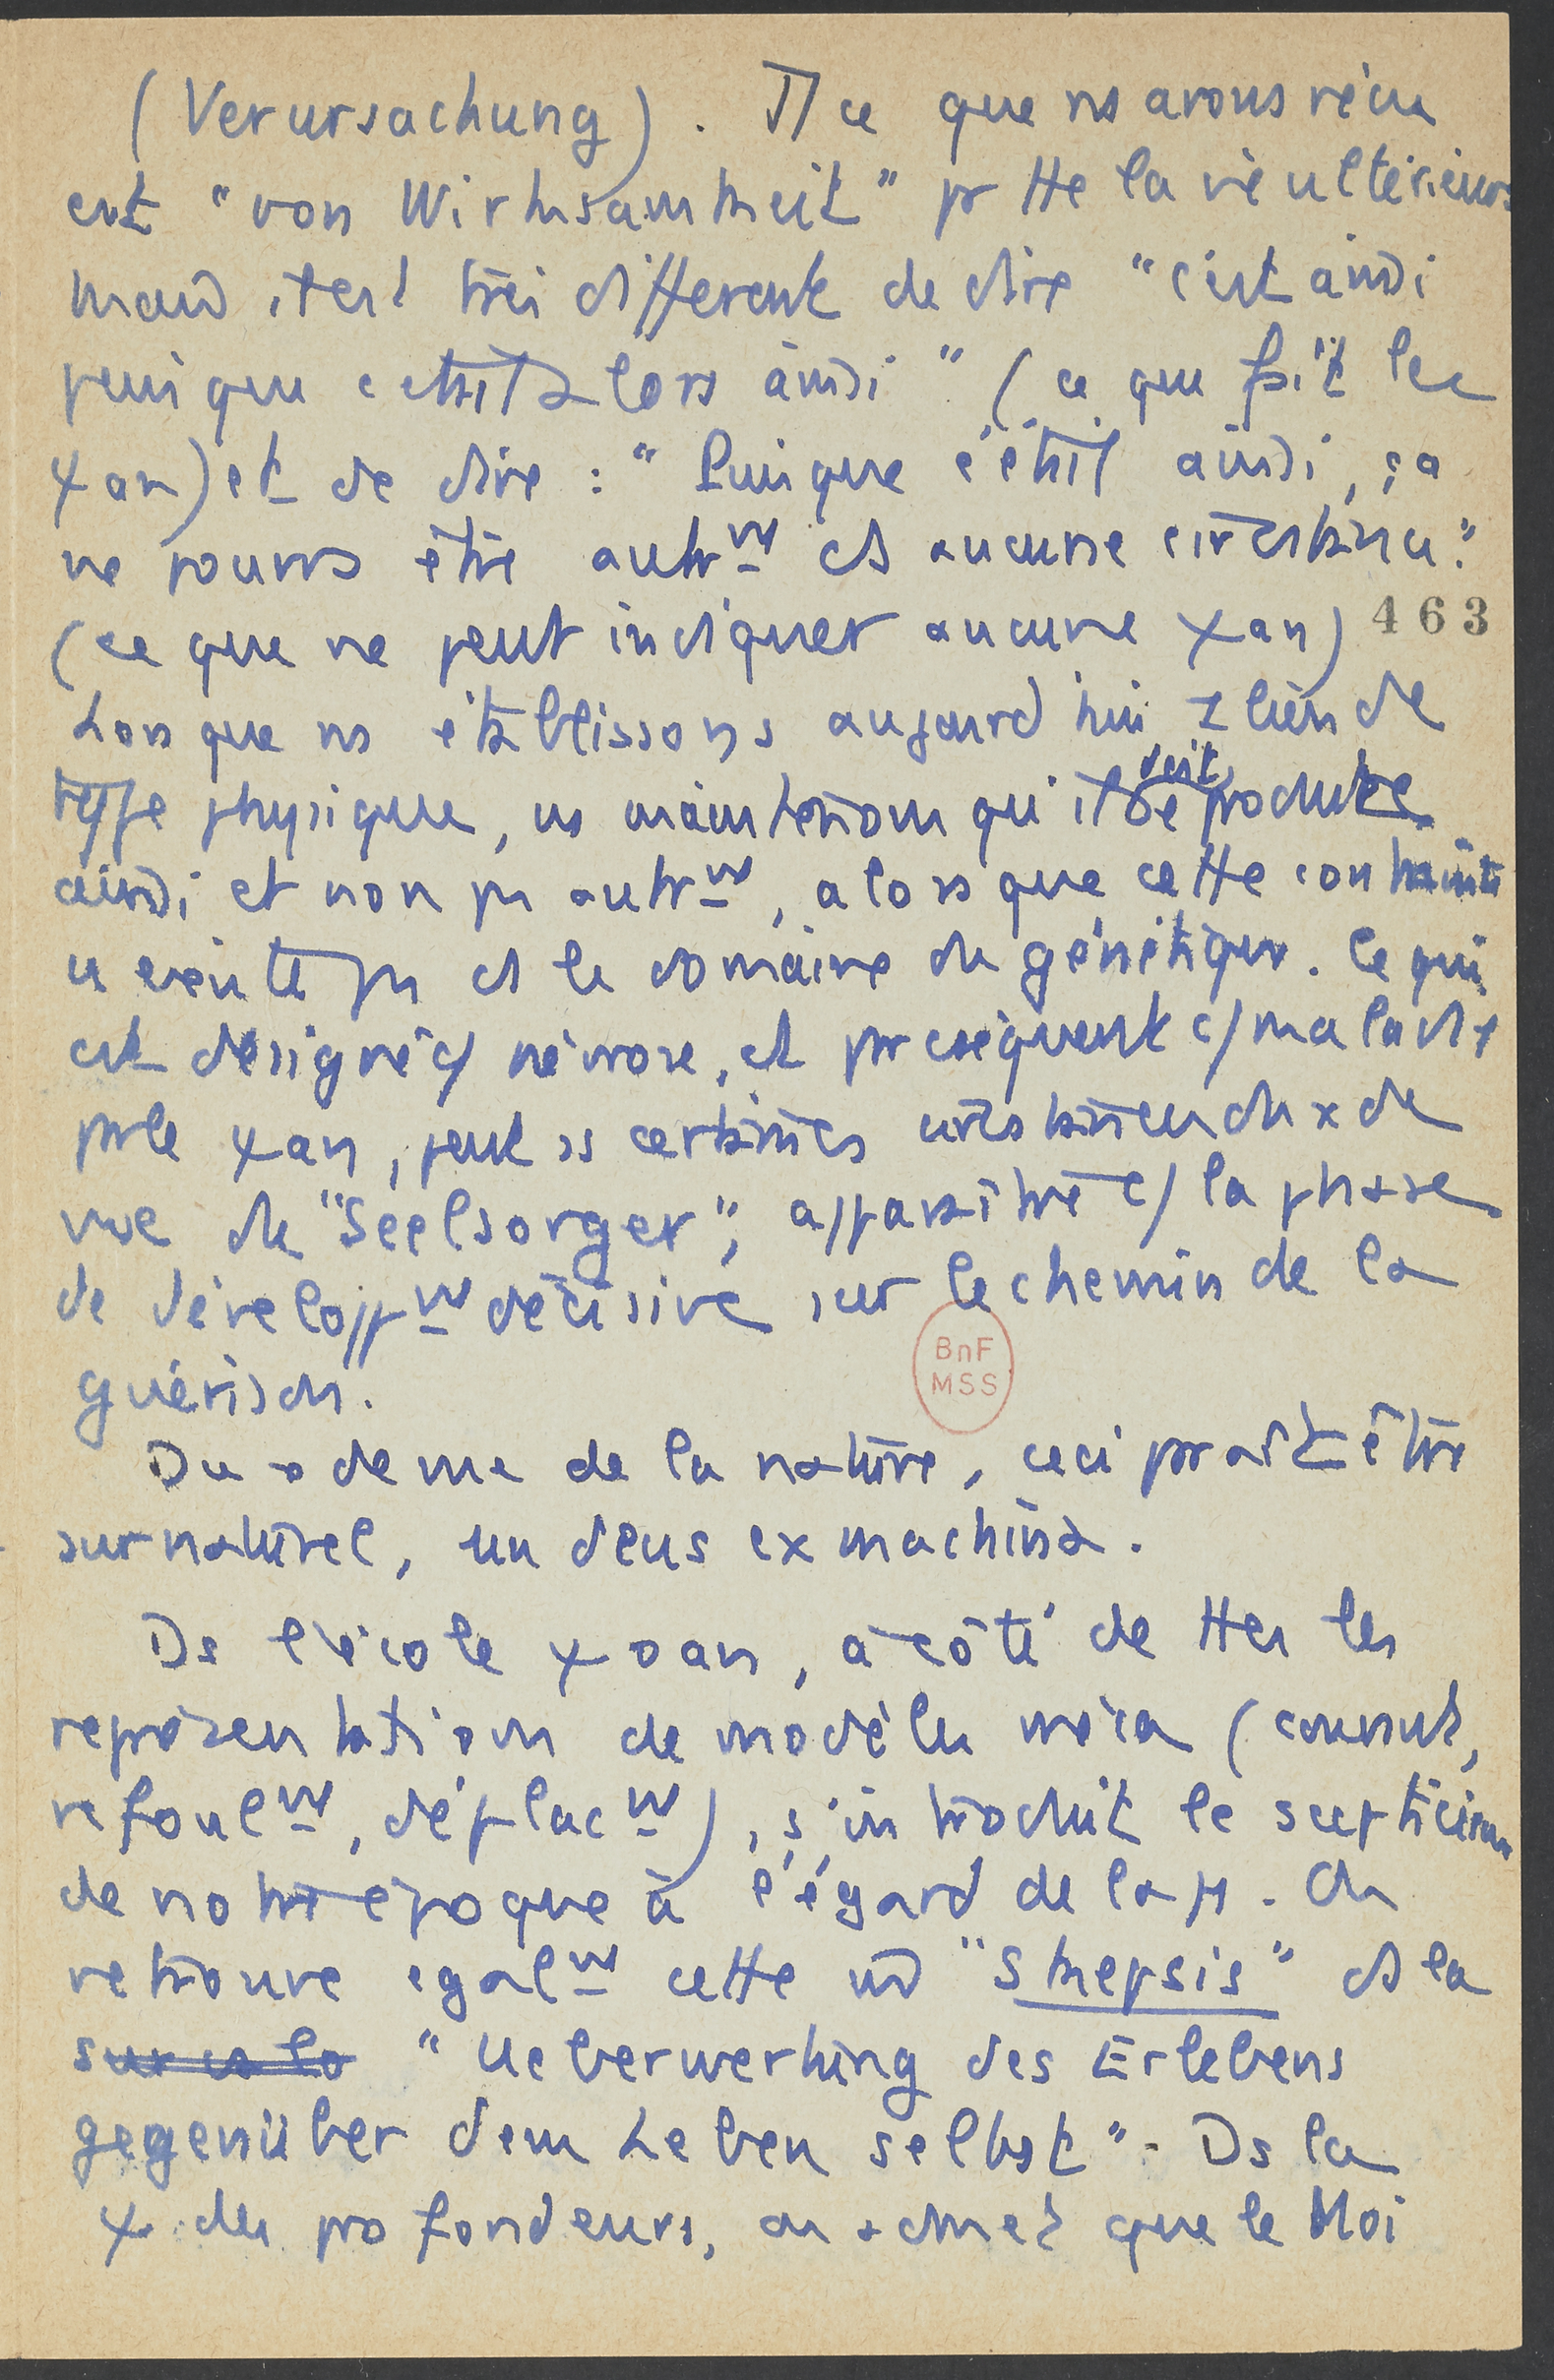 (Verursachung). Tt ce que ns avons vécu
est "von Wirksamkeit" pr tte la vie ultérieure
mais il est très différent de dire "c'est ainsi
puisque c'était alors ainsi" (ce que fait la
ψan) et de dire : "Puisque c'était ainsi, ça
ne pourra être autrmt ds aucune circonstance"
(ce que ne peut indiquer aucune ψan) 463
Lorsque ns établissons aujourd'hui 1 lien de
type physique, ns maintenons qu'il doit se produire
ainsi et non pas autrmt, alors que cette contrainte
n'existe pas ds le domaine du génétique. Ce qui
est désigné c/ névrose, et par conséquent c/ maladie
par la ψan, peut ds certaines circonstances du x de
vue du "Seelsorger", apparaître c/ la phase
de développmt décisive sur le chemin de la
guérison.
Du x de vue de la nature, ceci paraît être
surnaturel, un deus ex machina.
Ds l'école ψoan, à côté de ttes les
représentations de modèles méca (connus,
refoulmt, déplacmt), s'introduit le scepticisme
de notre époque à l'égard de la ψ. On
retrouve égalmt cette "Skepsis" ds la
"Ueberwertung des Erlebens
gegenüber dem Leben selbst". Ds la
ψ des profondeurs, on admet que le Moi
BnF
MSS